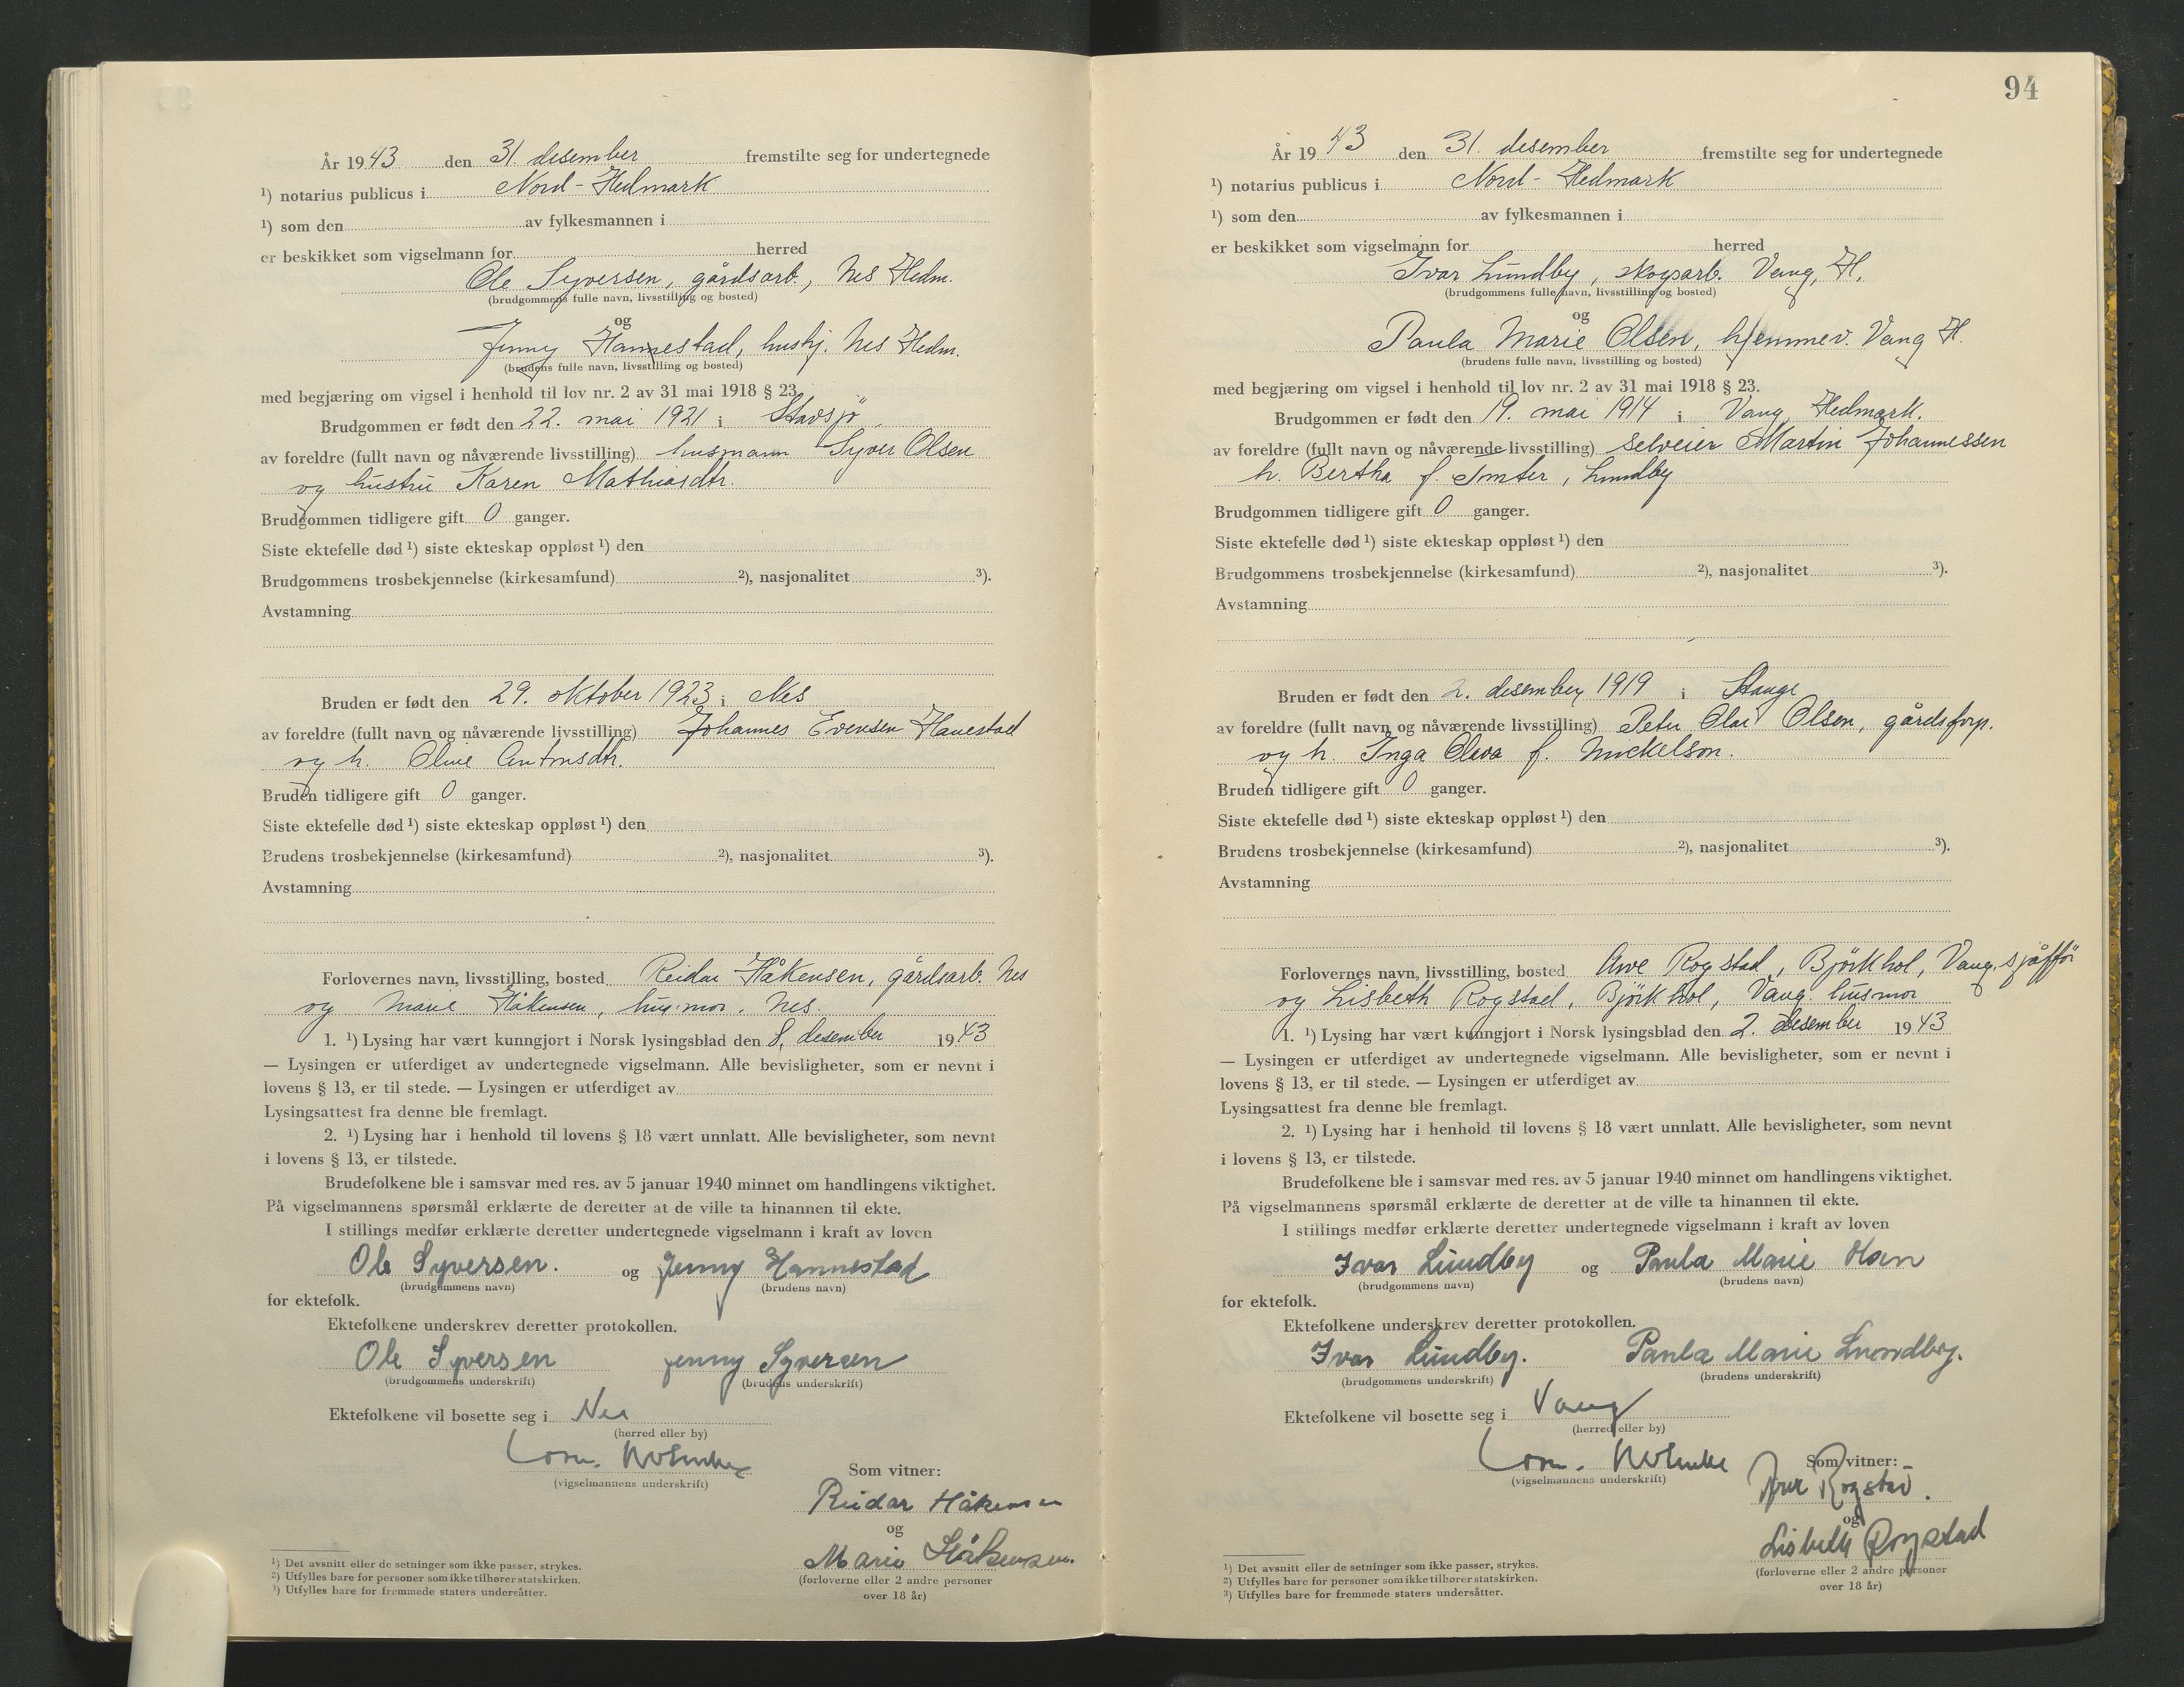 År 1943 den 31. desember fremstilte seg for undertegnede
¹) notarius publicus i Nord-Hedmark
¹) som den av fylkesmannen i
er beskikket som vigselmann for herred
Ole Syversen, gårdsarb., Nes Hedm.
(brudgommens fulle navn, livsstilling og bosted)
og
Jenny Hannestad, hushj. Nes Hedm.
(brudens fulle navn, livsstilling og bosted)
med begjæring om vigsel i henhold til lov nr. 2 av 31 mai 1918 § 23.
Brudgommen er født den 22. mai 1921 i Stavsjö
av foreldre (fullt navn og nåværende livsstilling) husmann Syver Olsen
og hustru Karen Mathiasdtr.
Brudgommen tidligere gift 0 ganger.
Siste ektefelle død ¹) siste ekteskap oppløst ¹) den
Brudgommens trosbekjennelse (kirkesamfund) ²), nasjonalitet ³).
Avstamning
Bruden er født den 29. oktober 1923 i Nes
av foreldre (fullt navn og nåværende livsstilling) Johannes Evensen Hanestad
og h. Oline Antonsdtr.
Bruden tidligere gift 0 ganger.
Siste ektefelle død ¹) siste ekteskap oppløst ¹) den
Brudens trosbekjennelse (kirkesamfund) ²), nasjonalitet ³).
Avstamning
Forlovernes navn, livsstilling, bosted Reidar Håkensen, gårdsarb. Nes
og Marie Håkensen, husmor. Nes.
1. ¹) Lysing har vært kunngjort i Norsk lysingsblad den 8. desember 1943
— Lysingen er utferdiget av undertegnede vigselmann. Alle bevisligheter, som er nevnt i
lovens § 13, er til stede. — Lysingen er utferdiget av
Lysingsattest fra denne ble fremlagt.
2. ¹) Lysing har i henhold til lovens § 18 vært unnlatt. Alle bevisligheter, som nevnt
i lovens § 13, er tilstede.
Brudefolkene ble i samsvar med res. av 5 januar 1940 minnet om handlingens viktighet.
På vigselmannens spørsmål erklærte de deretter at de ville ta hinannen til ekte.
I stillings medfør erklærte deretter undertegnede vigselmann i kraft av loven
Ole Syversen. og Jenny Hannestad
(brudgommens navn) (brudens navn)
for ektefolk.
Ektefolkene underskrev deretter protokollen.
Ole Syversen Jenny Syversen
(brudgommens underskrift) (brudens underskrift)
Ektefolkene vil bosette seg i Nes
(herred eller by)
(vigselmannens underskrift)
Som vitner:
Reidar Håkensen
og
Marie Håkensen.
(forloverne eller 2 andre personer
over 18 år)
¹) Det avsnitt eller de setninger som ikke passer, strykes.
²) Utfylles bare for personer som ikke tilhører statskirken.
³) Utfylles bare for fremmede staters undersåtter.
94
År 1943 den 31. desember fremstilte seg for undertegnede
¹) notarius publicus i Nord-Hedmark
¹) som den av fylkesmannen i
er beskikket som vigselmann for herred
Ivar Lundby, skogsarb. Vang, H.
(brudgommens fulle navn, livsstilling og bosted)
og
Paula Marie Olsen, hjemmev. Vang H.
(brudens fulle navn, livsstilling og bosted)
med begjæring om vigsel i henhold til lov nr. 2 av 31 mai 1918 § 23.
Brudgommen er født den 19. mai 1914 i Vang, Hedmark.
av foreldre (fullt navn og nåværende livsstilling) selveier Martin Johannessen
h. Bertha f. Imter, Lundby
Brudgommen tidligere gift 0 ganger.
Siste ektefelle død ¹) siste ekteskap oppløst ¹) den
Brudgommens trosbekjennelse (kirkesamfund) ²), nasjonalitet ³).
Avstamning
Bruden er født den 2. desember 1919 i Stange
av foreldre (fullt navn og nåværende livsstilling) Peter Olai Olsen, gårdsforp.
og h. Inga Oleva f. Mickelson.
Bruden tidligere gift 0 ganger.
Siste ektefelle død ¹) siste ekteskap oppløst ¹) den
Brudens trosbekjennelse (kirkesamfund) ²), nasjonalitet ³).
Avstamning
Forlovernes navn, livsstilling, bosted Arve Rogstad, Björkhol, Vang, sjåfför
og Lisbeth Rogstad, Björkhol, Vang. husmor
1. ¹) Lysing har vært kunngjort i Norsk lysingsblad den 2. desember 1943
— Lysingen er utferdiget av undertegnede vigselmann. Alle bevisligheter, som er nevnt i
lovens § 13, er til stede. — Lysingen er utferdiget av
Lysingsattest fra denne ble fremlagt.
2. ¹) Lysing har i henhold til lovens § 18 vært unnlatt. Alle bevisligheter, som nevnt
i lovens § 13, er tilstede.
Brudefolkene ble i samsvar med res. av 5 januar 1940 minnet om handlingens viktighet.
På vigselmannens spørsmål erklærte de deretter at de ville ta hinannen til ekte.
I stillings medfør erklærte deretter undertegnede vigselmann i kraft av loven
Ivar Lundby og Paula Marie Olsen
(brudgommens navn) (brudens navn)
for ektefolk.
Ektefolkene underskrev deretter protokollen.
Ivar Lundby. Paula Marie Lundby.
(brudgommens underskrift) (brudens underskrift)
Ektefolkene vil bosette seg i Vang
(herred eller by)
(vigselmannens underskrift)
Som vitner:
Rogstad.
og
Lisbeth Rogstad
(forloverne eller 2 andre personer
over 18 år)
¹) Det avsnitt eller de setninger som ikke passer, strykes.
²) Utfylles bare for personer som ikke tilhører statskirken.
³) Utfylles bare for fremmede staters undersåtter.